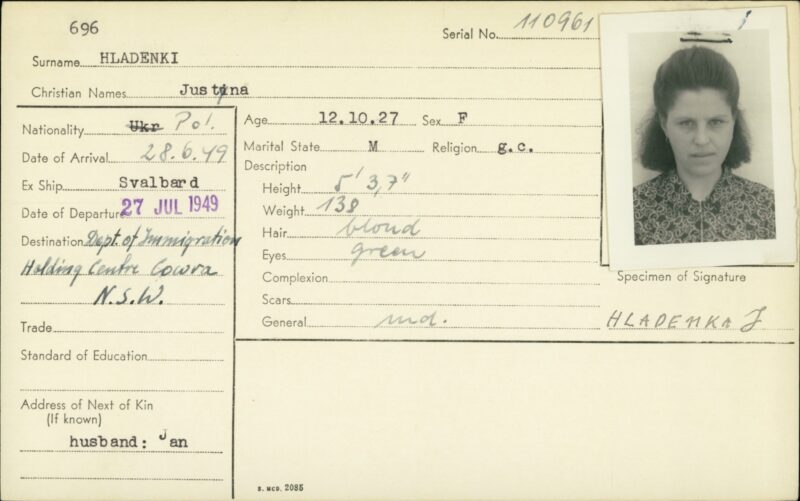 696
Serial No. 110961
Surname HLADENKI
Christian Names Justyna
Nationality Ukr Pol.
Date of Arrival 28.6.49
Ex Ship Svalbard
Date of Departure 27 JUL 1949
Destination Dept. of Immigration
Holding Centre Cowra
N.S.W.
Trade
Standard of Education
Address of Next of Kin
(If known)
husband: Jan
Age 12.10.27 Sex F
Marital State M Religion g.c.
Description
Height 5' 3,7"
Weight 138
Hair blond
Eyes green
Complexion
Scars
General md.
Specimen of Signature
HLADEMKA J
S. MCD. 2085